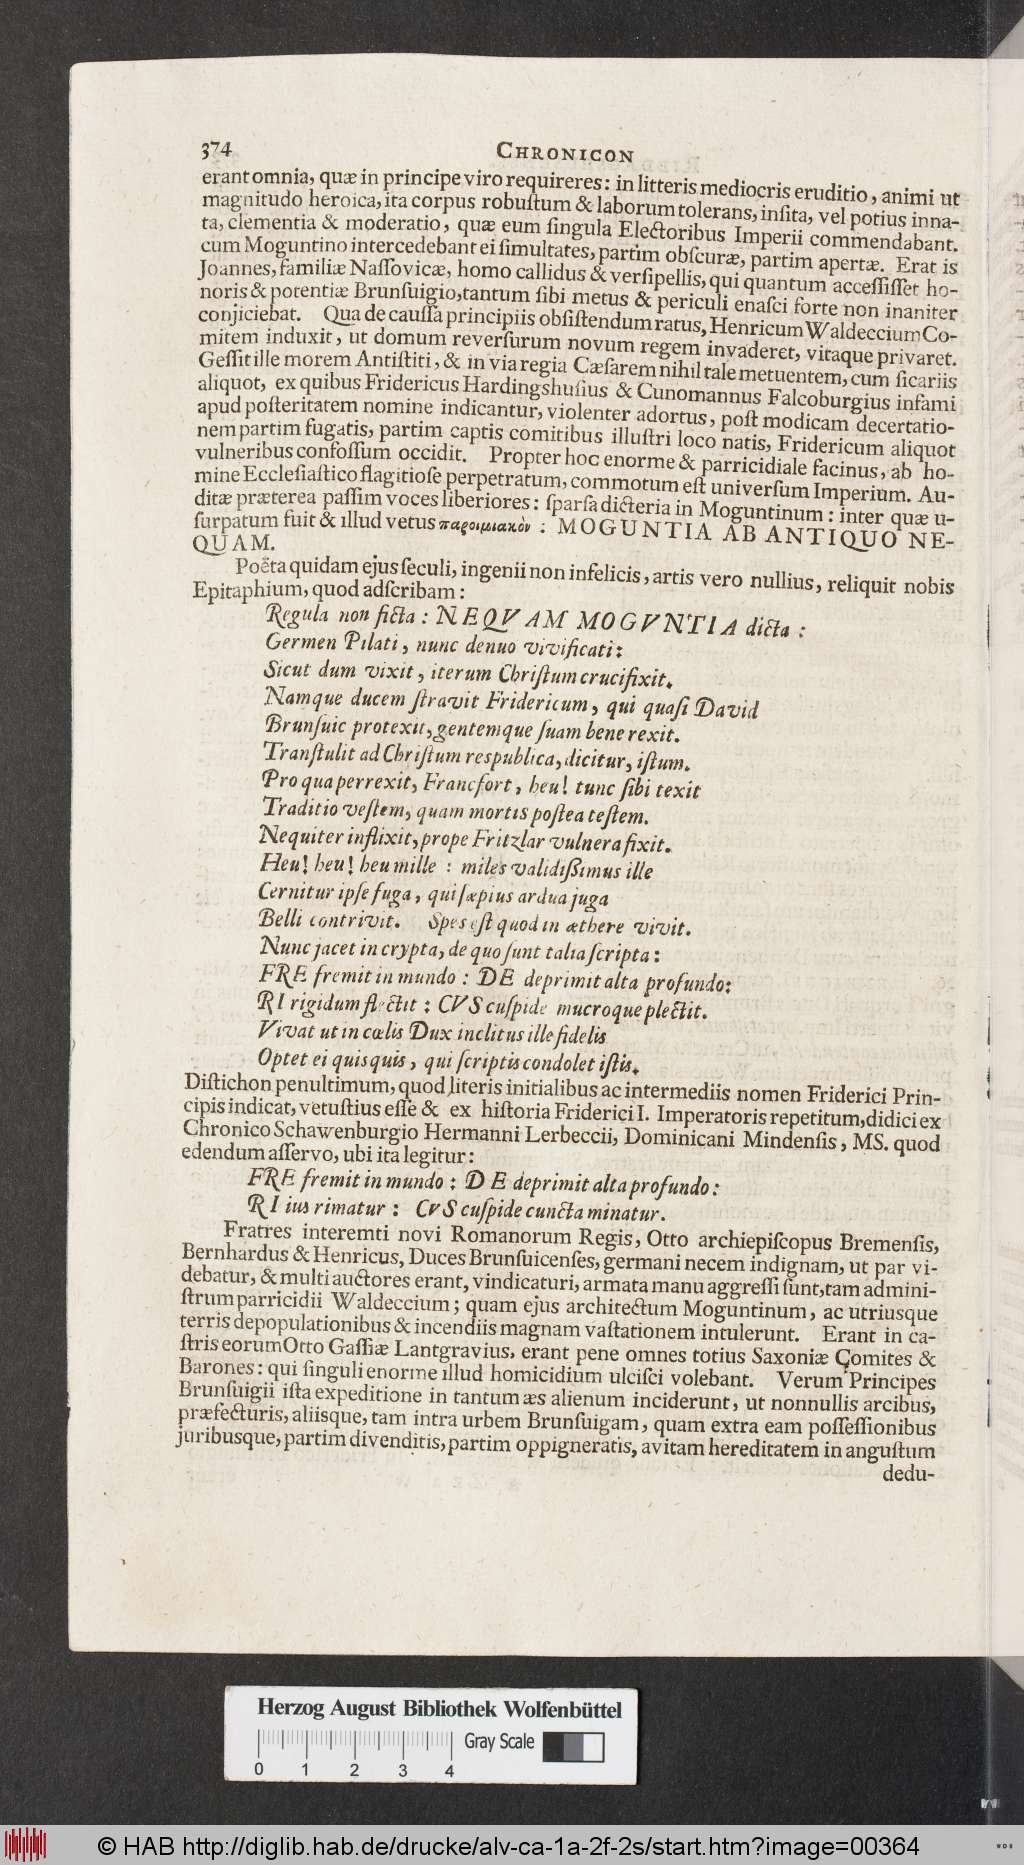 374 CHRONICON
erant omnia, quæ in principe viro requireres: in litteris mediocris eruditio, animi ut
magnitudo heroica, ita corpus robuſtum & laborum tolerans, inſita, vel potius inna-
ta, clementia & moderatio, quæ eum ſingula Electoribus Imperii commendabant.
cum Moguntino intercedebant ei ſimultates, partim obſcuræ, partim apertæ. Erat is
Joannes, familiæ Naſſovicæ, homo callidus & verſipellis, qui quantum acceſſiſſet ho-
noris & potentiæ Brunſuigio, tantum ſibi metus & periculi enaſci forte non inaniter
conjiciebat. Qua de cauſſa principiis obſiſtendum ratus, Henricum Waldeccium Co-
mitem induxit, ut domum reverſurum novum regem invaderet, vitaque privaret.
Geſſit ille morem Antiſtiti, & in via regia Cæſarem nihil tale metuentem, cum ſicariis
aliquot, ex quibus Fridericus Hardingshuſius & Cunomannus Falcoburgius infami
apud poſteritatem nomine indicantur, violenter adortus, poſt modicam decertatio-
nem partim fugatis, partim captis comitibus illuſtri loco natis, Fridericum aliquot
vulneribus confoſſum occidit. Propter hoc enorme & parricidiale facinus, ab ho-
mine Eccleſiaſtico flagitioſe perpetratum, commotum eſt univerſum Imperium. Au-
ditæ præterea paſſim voces liberiores: ſparſa dicteria in Moguntinum: inter quæ u-
ſurpatum fuit & illud vetus παροιμιακὸν: MOGUNTIA AB ANTIQUO NE-
QUAM.
Poëta quidam ejus ſeculi, ingenii non infelicis, artis vero nullius, reliquit nobis
Epitaphium, quod adſcribam:
Regula non ficta: NEQVAM MOGVNTIA dicta:
Germen Pilati, nunc denuo vivificati:
Sicut dum vixit, iterum Chriſtum crucifixit.
Namque ducem ſtravit Fridericum, qui quaſi David
Brunſuic protexit, gentemque ſuam bene rexit.
Tranſtulit ad Chriſtum respublica, dicitur, iſtum.
Pro qua perrexit, Francfort, heu! tunc ſibi texit
Traditio veſtem, quam mortis poſtea teſtem.
Nequiter inflixit, prope Fritzlar vulnera fixit.
Heu! heu! heu mille: miles validißimus ille
Cernitur ipſe fuga, qui ſæpius ardua juga
Belli contrivit. Spes eſt quod in æthere vivit.
Nunc jacet in crypta, de quo ſunt talia ſcripta:
FRE fremit in mundo: DE deprimit alta profundo:
RI rigidum flectit: CVS cuſpide mucroque plectit.
Vivat ut in cœlis Dux inclitus ille fidelis
Optet ei quisquis, qui ſcriptis condolet iſtis.
Diſtichon penultimum, quod literis initialibus ac intermediis nomen Friderici Prin-
cipis indicat, vetuſtius eſſe & ex hiſtoria Friderici I. Imperatoris repetitum, didici ex
Chronico Schawenburgio Hermanni Lerbeccii, Dominicani Mindenſis, MS. quod
edendum aſſervo, ubi ita legitur:
FRE fremit in mundo: DE deprimit alta profundo:
RI ius rimatur: CVS cuſpide cuncta minatur.
Fratres interemti novi Romanorum Regis, Otto archiepiſcopus Bremenſis,
Bernhardus & Henricus, Duces Brunſuicenſes, germani necem indignam, ut par vi-
debatur, & multi auctores erant, vindicaturi, armata manu aggreſſi ſunt, tam admini-
ſtrum parricidii Waldeccium; quam ejus architectum Moguntinum, ac utriusque
terris depopulationibus & incendiis magnam vaſtationem intulerunt. Erant in ca-
ſtris eorum Otto Gaſſiæ Lantgravius, erant pene omnes totius Saxoniæ Comites &
Barones: qui ſinguli enorme illud homicidium ulciſci volebant. Verum Principes
Brunſuigii iſta expeditione in tantum æs alienum inciderunt, ut nonnullis arcibus,
præfecturis, aliisque, tam intra urbem Brunſuigam, quam extra eam poſſeſſionibus
juribusque, partim divenditis, partim oppigneratis, avitam hereditatem in anguſtum
dedu-
Herzog August Bibliothek Wolfenbüttel
Gray Scale
0 1 2 3 4
© HAB http://diglib.hab.de/drucke/alv-ca-1a-2f-2s/start.htm?image=00364